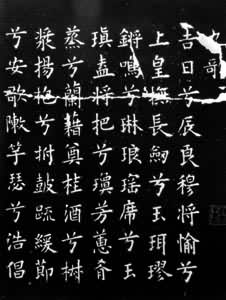 九歌
吉日兮辰良穆將愉兮
上皇撫長劒兮玉珥璆
鏘鳴兮琳琅瑤席兮玉
瑱盍將把兮瓊芳蕙肴
蒸兮蘭藉奠桂酒兮椒
漿揚枹兮拊鼓疏緩節
兮安歌陳竽瑟兮浩倡